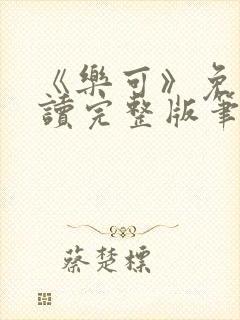 《樂可》免
讀完整版筆
蔡楚標